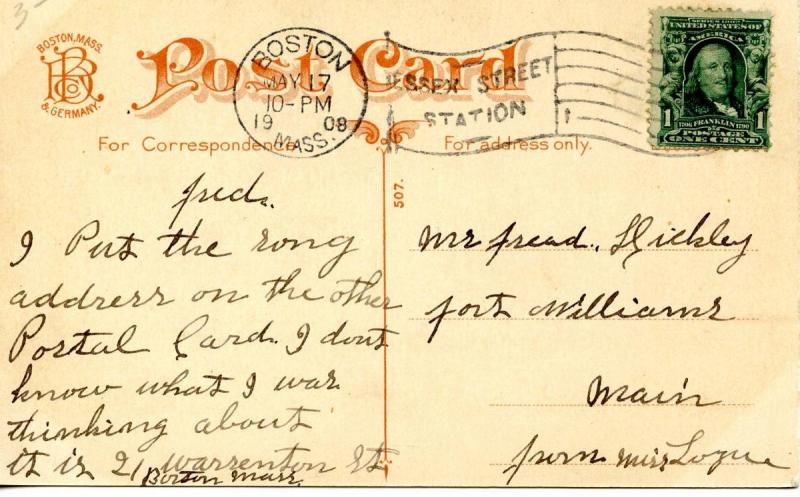 3-
BOSTON, MASS.
B Co
& GERMANY.
Post Card
BOSTON
MAY 17
10-PM
19 08
MASS.
ESSEX STREET
STATION
UNITED STATES OF
AMERICA
1706 FRANKLIN 1790
1 POSTAGE 1
ONE CENT
For Correspondence
For address only.
507.
fred.
I Put the rong
address on the other
Portal Card. I dont
know what I was
thinking about
it is 21 Warrenton St
Boston Mass.
Mr fread. Hickley
fort Williams
Main
from Miss Logue